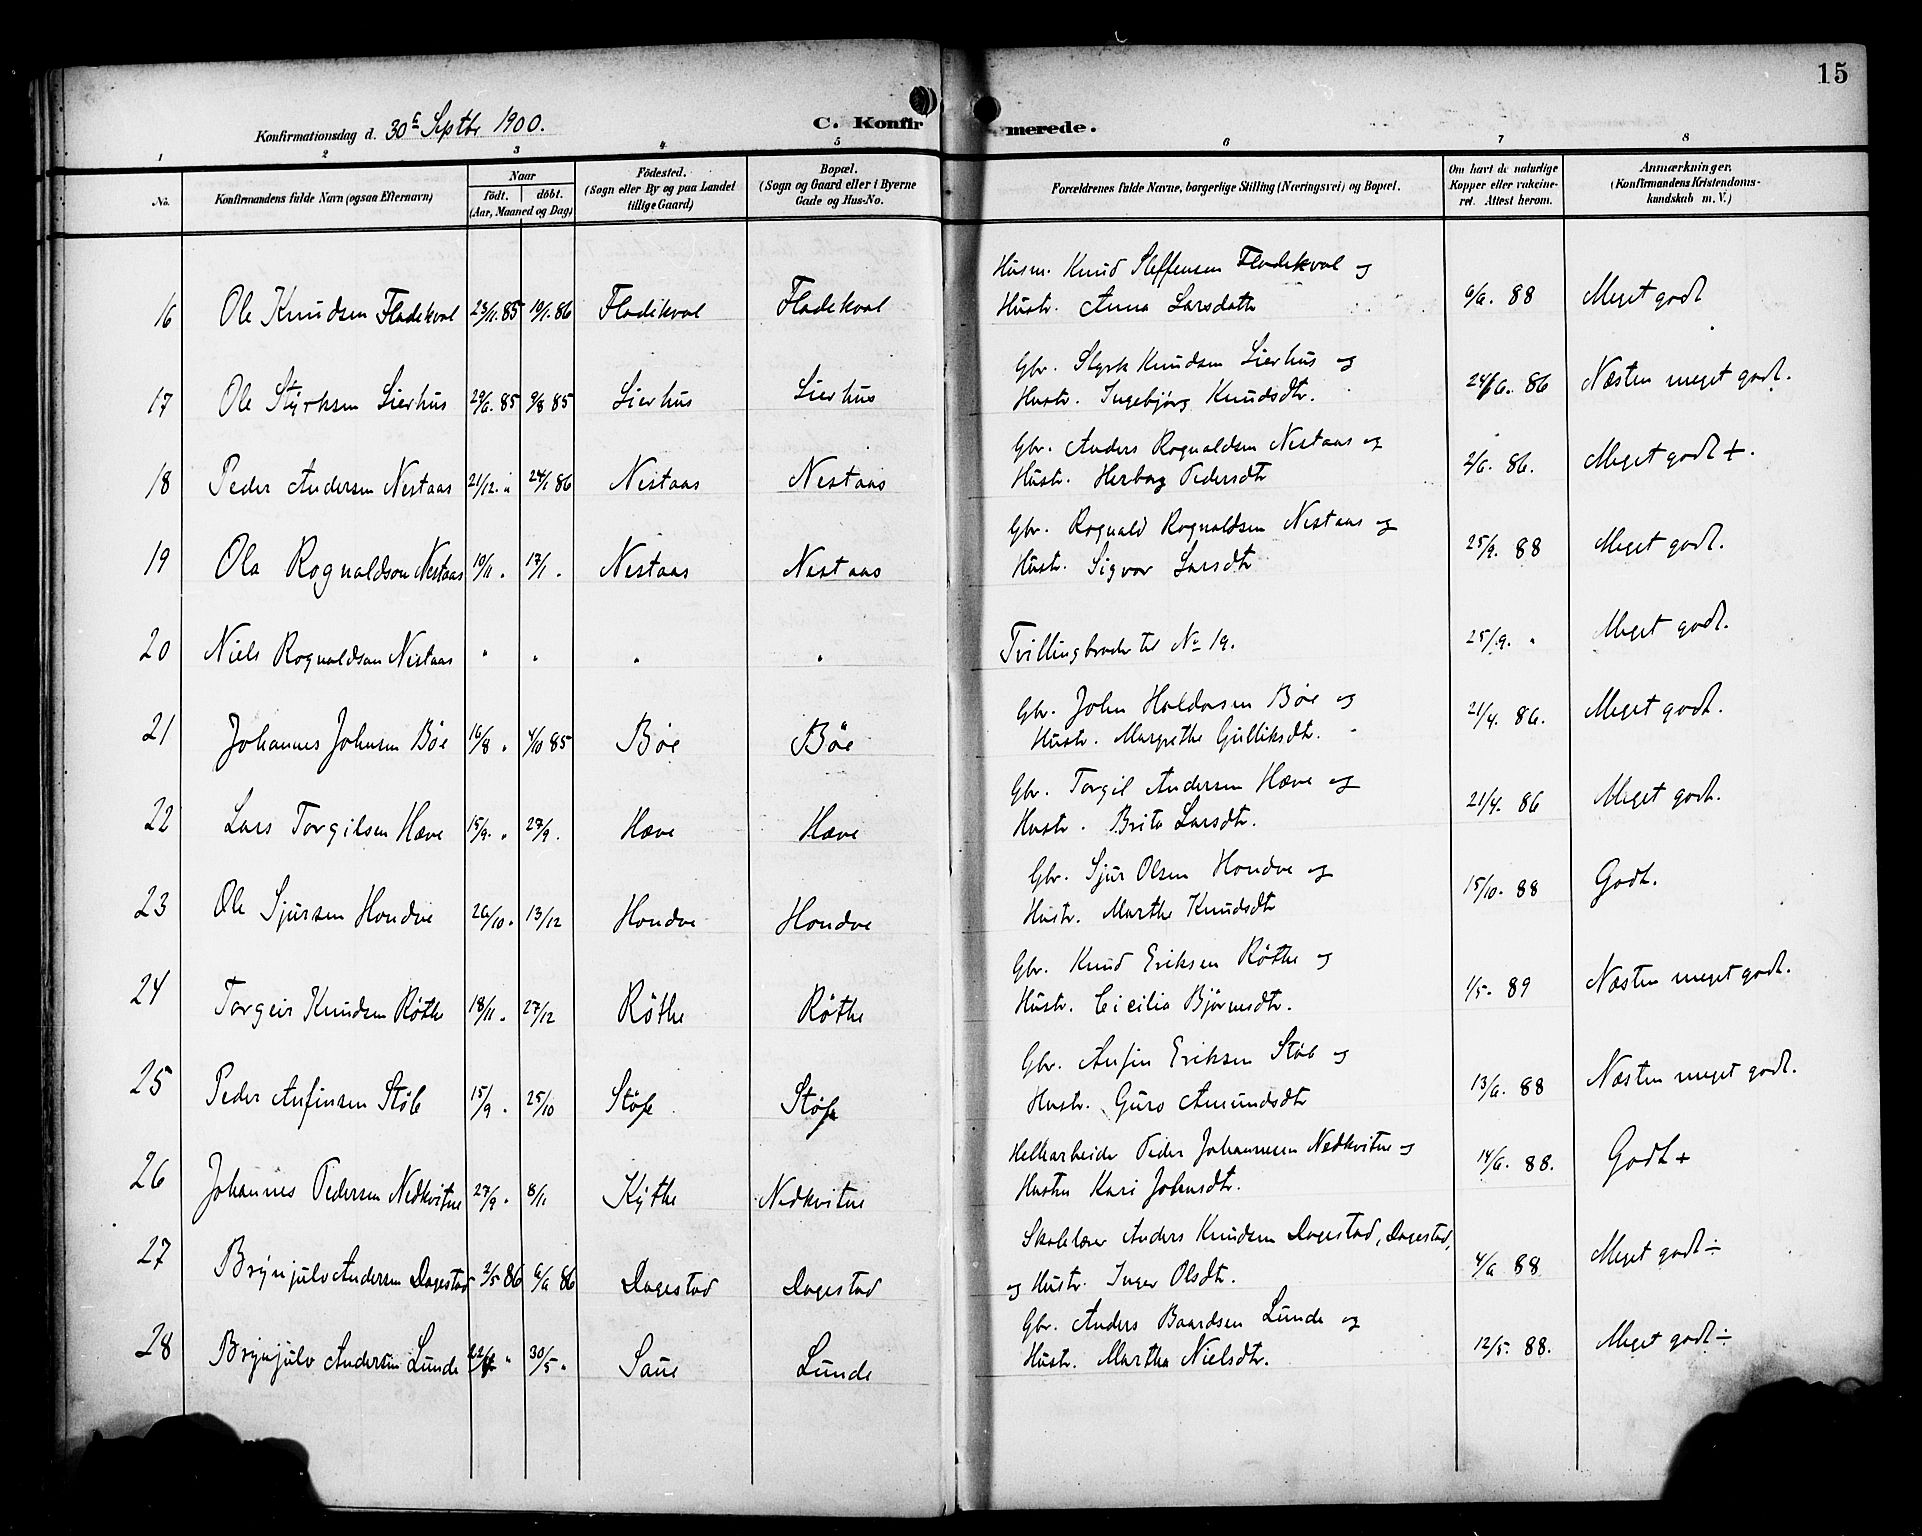 15
Konfirmationsdag d. 30te Septbr 1900. C. Konfirmerede.
1 2 3 4 5 6 7 8
No. Konfirmandens fulde Navn (ogsaa Efternavn) Naar født. døbt. (Aar, Maaned og Dag) Fødested. (Sogn eller By og paa Landet tillige Gaard) Bopæl. (Sogn og Gaard eller i Byerne Gade og Hus-No. Forældrenes fulde Navne, borgerlige Stilling (Næringsvei) og Bopæl. Om havt de naturlige Kopper eller vakcineret. Attest herom. Anmærkninger. (Konfirmandens Kristendomskundskab m. V.)
Husm. Knud Steffensen Fladekval og
16 Ole Knudsen Fladekval 23/11. 85 19/1. 86 Fladekval Fladekval Hustr. Anna Larsdatr 6/6. 88 Meget godt
Gbr. Styrk Knudsen Lierhus og
17 Ole Styrksen Lierhus 29/6. 85 9/8 85 Lierhus Lierhus Hustr. Ingebjørg Knudsdtr. 24/6. 86 Næsten meget godt.
Gbr. Anders Rognaldsen Nestaas og
18 Peder Andersen Nestaas 21/12. " 24/1 86 Nestaas Nestaas Hustr. Herborg Pedersdtr 2/6. 86. Meget godt +.
Gbr. Rognald Rognaldsen Nestaas og
19 Ola Rognaldson Nestaas 10/11 " 17/1 " Nestaas Nestaas Hustr. Sigvor Larsdtr 25/9. 88 Meget godt.
20 Niels Rognaldsen Nestaas " " " " Tvillingbroder til No 19. 25/9. " Meget godt.
Gbr. John Haldorsen Bøe og
21 Johannes Johnsen Bøe 16/8 " 4/10 85 Bøe Bøe Hustr. Margrethe Gulliksdtr. 21/4. 86. Meget godt.
Gbr. Torgil Andersen Hæve og
22 Lars Torgilsen Hæve 15/9. " 27/9. Hæve Hæve Hustr. Brita Larsdtr. 21/4. 86 Meget godt.
Gbr. Sjur Olsen Hondve og
23 Ole Sjursen Hondve 26/10. 13/12 Hondve Hondve Hustr. Marthe Knudsdtr 15/10. 88 Godt.
Gbr. Knud Eriksen Røthe og
24 Torgeir Knudsen Røthe 18/11 " 27/12 Røthe Røthe Hustr. Cicilia Bjørnsdtr. 1/5. 89 Næsten meget godt.
Gbr. Anfin Eriksen Støle og
25 Peder Anfinsen Støle 15/9 " 25/10 Støle Støle Hustr. Guro Amundsdtr 13/6. 88 Næsten meget godt.
Helkarbeider Peder Johannesen Nedkvitne og
26 Johannes Pedersen Nedkvitne 27/9 " 8/11 Kythe Nedkvitne Hustru Kari Johnsdtr. 14/6. 88. Godt +
Skolelærer Anders Knudsen Dagestad, Dagestad,
27 Brynjulv Andersen Dagestad 2/5 86 6/6 86 Dagestad Dagestad og Hustr. Inger Olsdtr. 4/6 88 Meget godt ÷
Gbr. Anders Baardsen Lunde og
28 Brynjulv Andersen Lunde " 30/5 " Saue Lunde Hustr. Martha Nielsdtr. 12/5. 88. Meget godt ÷